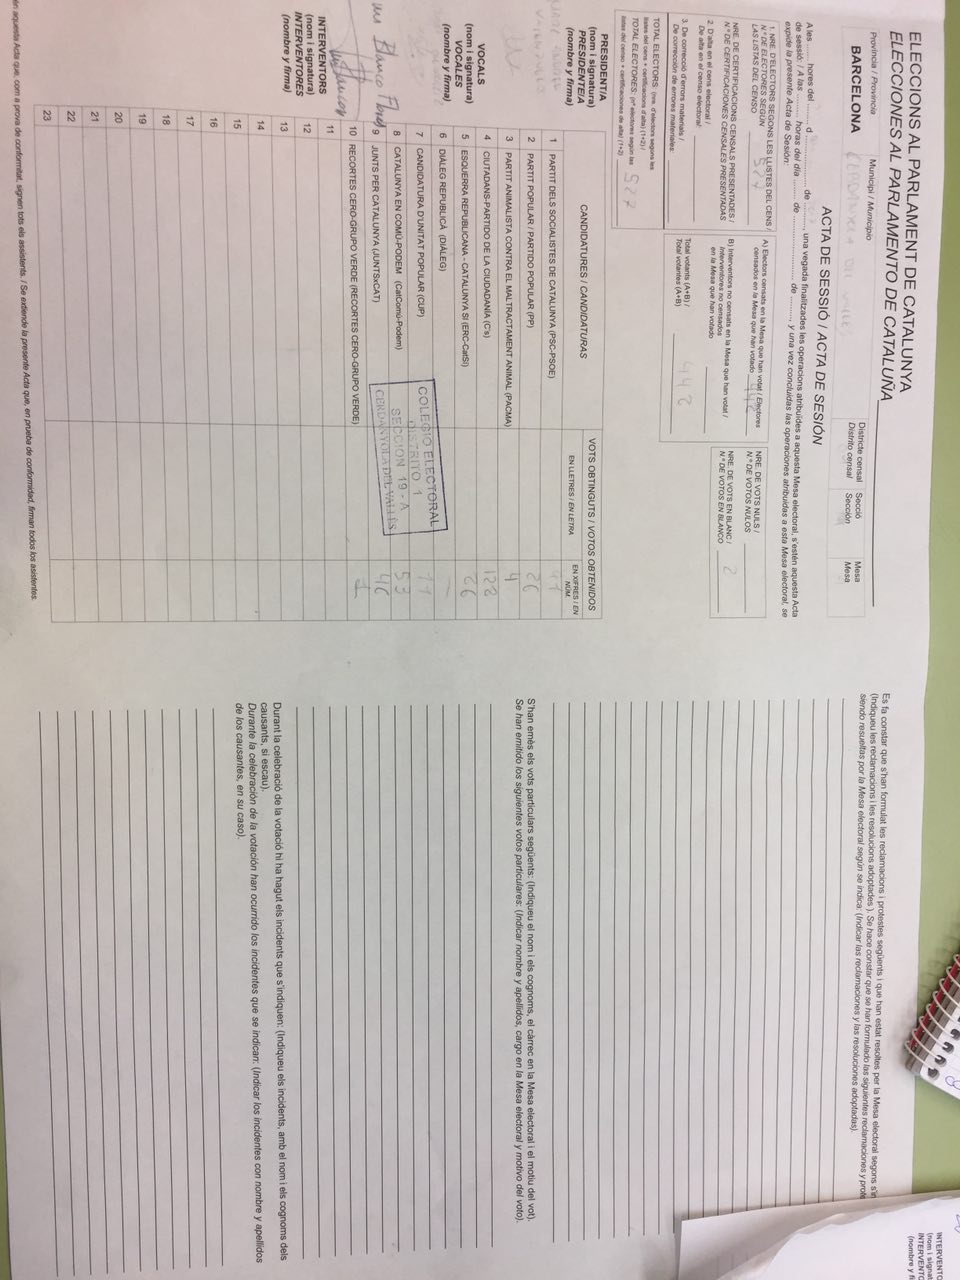 ELECCIONS AL PARLAMENT DE CATALUNYA
ELECCIONES AL PARLAMENTO DE CATALUÑA
Província / Provincia
Municipi / Municipio
Districte censal
Distrito censal
Secció
Sección
Mesa
Mesa
BARCELONA
ACTA DE SESSIÓ / ACTA DE SESIÓN
A les hores del d de , una vegada finalitzades les operacions atribuïdes a aquesta Mesa electoral, s'estén aquesta Acta
de sessió: / A las horas del día de de , y una vez concluidas las operaciones atribuidas a esta Mesa electoral, se
expide la presente Acta de Sesión:
1. NRE. D'ELECTORS SEGONS LES LLISTES DEL CENS /
N.º DE ELECTORES SEGÚN
LAS LISTAS DEL CENSO 527
NRE. DE CERTIFICACIONS CENSALS PRESENTADES /
N.º DE CERTIFICACIONES CENSALES PRESENTADAS
2. D'alta en el cens electoral /
De alta en el censo electoral:
3. De correcció d'errors materials /
De corrección de errores materiales:
TOTAL ELECTORS: (nre. d'electors segons les
llistes del cens + certificacions d'alta) (1+2) /
TOTAL ELECTORES: (nº electores según las
listas del censo + certificaciones de alta) (1+2) 527
A) Electors censats en la Mesa que han votat / Electores
censados en la Mesa que han votado 442
B) Interventors no censats en la Mesa que han votat /
Interventores no censados
en la Mesa que han votado
Total votants (A+B) /
Total votantes (A+B) 442
NRE. DE VOTS NULS /
N.º DE VOTOS NULOS
NRE. DE VOTS EN BLANC /
N.º DE VOTOS EN BLANCO 2
CANDIDATURES / CANDIDATURAS
VOTS OBTINGUTS / VOTOS OBTENIDOS
EN LLETRES / EN LETRA
EN XIFRES / EN NÚM.
1 PARTIT DELS SOCIALISTES DE CATALUNYA (PSC-PSOE)
2 PARTIT POPULAR / PARTIDO POPULAR (PP) 26
3 PARTIT ANIMALISTA CONTRA EL MALTRACTAMENT ANIMAL (PACMA) 4
4 CIUTADANS-PARTIDO DE LA CIUDADANÍA (C's) 128
5 ESQUERRA REPUBLICANA - CATALUNYA SÍ (ERC-CatSí) 66
6 DIÀLEG REPUBLICÀ (DIÀLEG)
7 CANDIDATURA D'UNITAT POPULAR (CUP)
8 CATALUNYA EN COMÚ-PODEM (CatComú-Podem) 53
9 JUNTS PER CATALUNYA (JUNTSxCAT) 46
10 RECORTES CERO-GRUPO VERDE (RECORTES CERO-GRUPO VERDE) 1
11
12
13
14
15
16
17
18
19
20
21
22
23
COLEGIO ELECTORAL
DISTRITO 1
SECCION 19 - A
CERDANYOLA DEL VALLÈS
PRESIDENT/A
(nom i signatura)
PRESIDENTE/A
(nombre y firma)
VOCALS
(nom i signatura)
VOCALES
(nombre y firma)
Blanco
INTERVENTORS
(nom i signatura)
INTERVENTORES
(nombre y firma)
aquesta Acta que, com a prova de conformitat, signen tots els assistents. / Se extiende la presente Acta que, en prueba de conformidad, firman todos los asistentes.
Es fa constar que s'han formulat les reclamacions i protestes següents i que han estat resoltes per la Mesa electoral segons
(Indiqueu les reclamacions i les resolucions adoptades). Se hace constar que se han formulado las siguientes reclamaciones y
siendo resueltas por la Mesa electoral según se indica: (Indicar las reclamaciones y las resoluciones adoptadas).
S'han emès els vots particulars següents: (Indiqueu el nom i els cognoms, el càrrec en la Mesa electoral i el motiu del vot).
Se han emitido los siguientes votos particulares: (Indicar nombre y apellidos, cargo en la Mesa electoral y motivo del voto).
Durant la celebració de la votació hi ha hagut els incidents que s'indiquen: (Indiqueu els incidents, amb el nom i els cognoms dels
causants, si escau).
Durante la celebración de la votación han ocurrido los incidentes que se indican: (Indicar los incidentes con nombre y apellidos
de los causantes, en su caso).